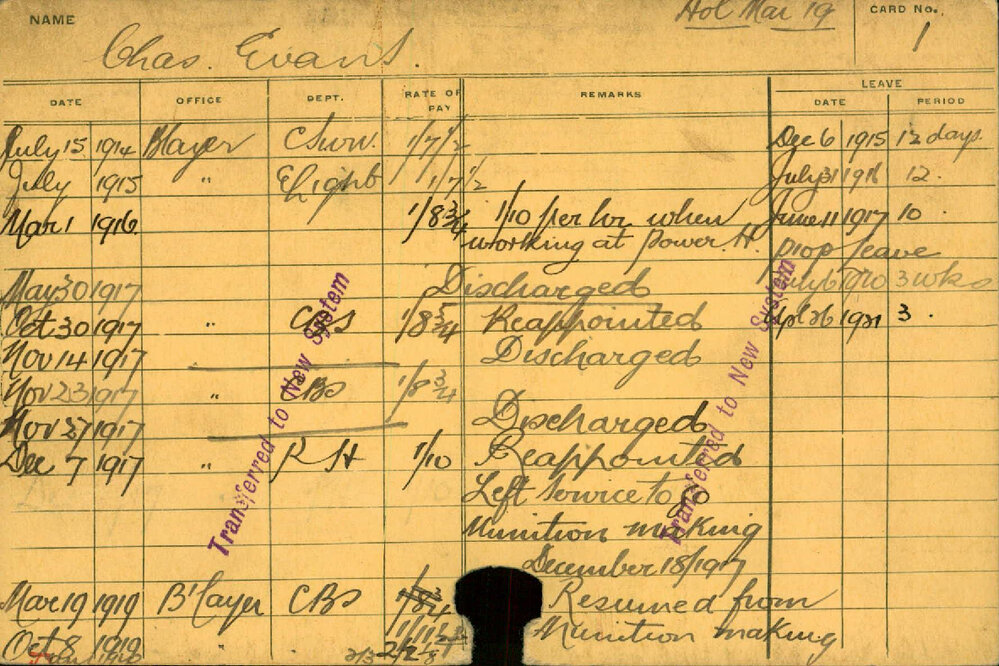 NAME Chas. Evans. Hol Mar 19 CARD No. 1
DATE OFFICE DEPT. RATE OF PAY REMARKS LEAVE DATE PERIOD
July 15 1914 B'layer 1/7 1/2 Dec 6 1915 12 days
July 1915 " E Light 1/7 1/2 July 31 1916 12.
Mar 1 1916 1/8 3/4 1/10 per hr when June 11 1917 10.
working at Power H. prop leave
May 30 1917 Discharged July 6 1920 3 wks
Oct 30 1917 " CBS 1/8 3/4 Reappointed Apl 26 1921 3.
Nov 14 1917 Discharged
Nov 23 1917 " CBS 1/8 3/4
Nov 27 1917 Discharged
Dec 7 1917 " RH 1/10 Reappointed
Left Service to go
Munition making
December 18/1917
Mar 19 1919 B'layer CBS 1/8 3/4 Resumed from
Oct 8 1919 " " Munition making
2/3
Transferred to New System
Transferred to New System